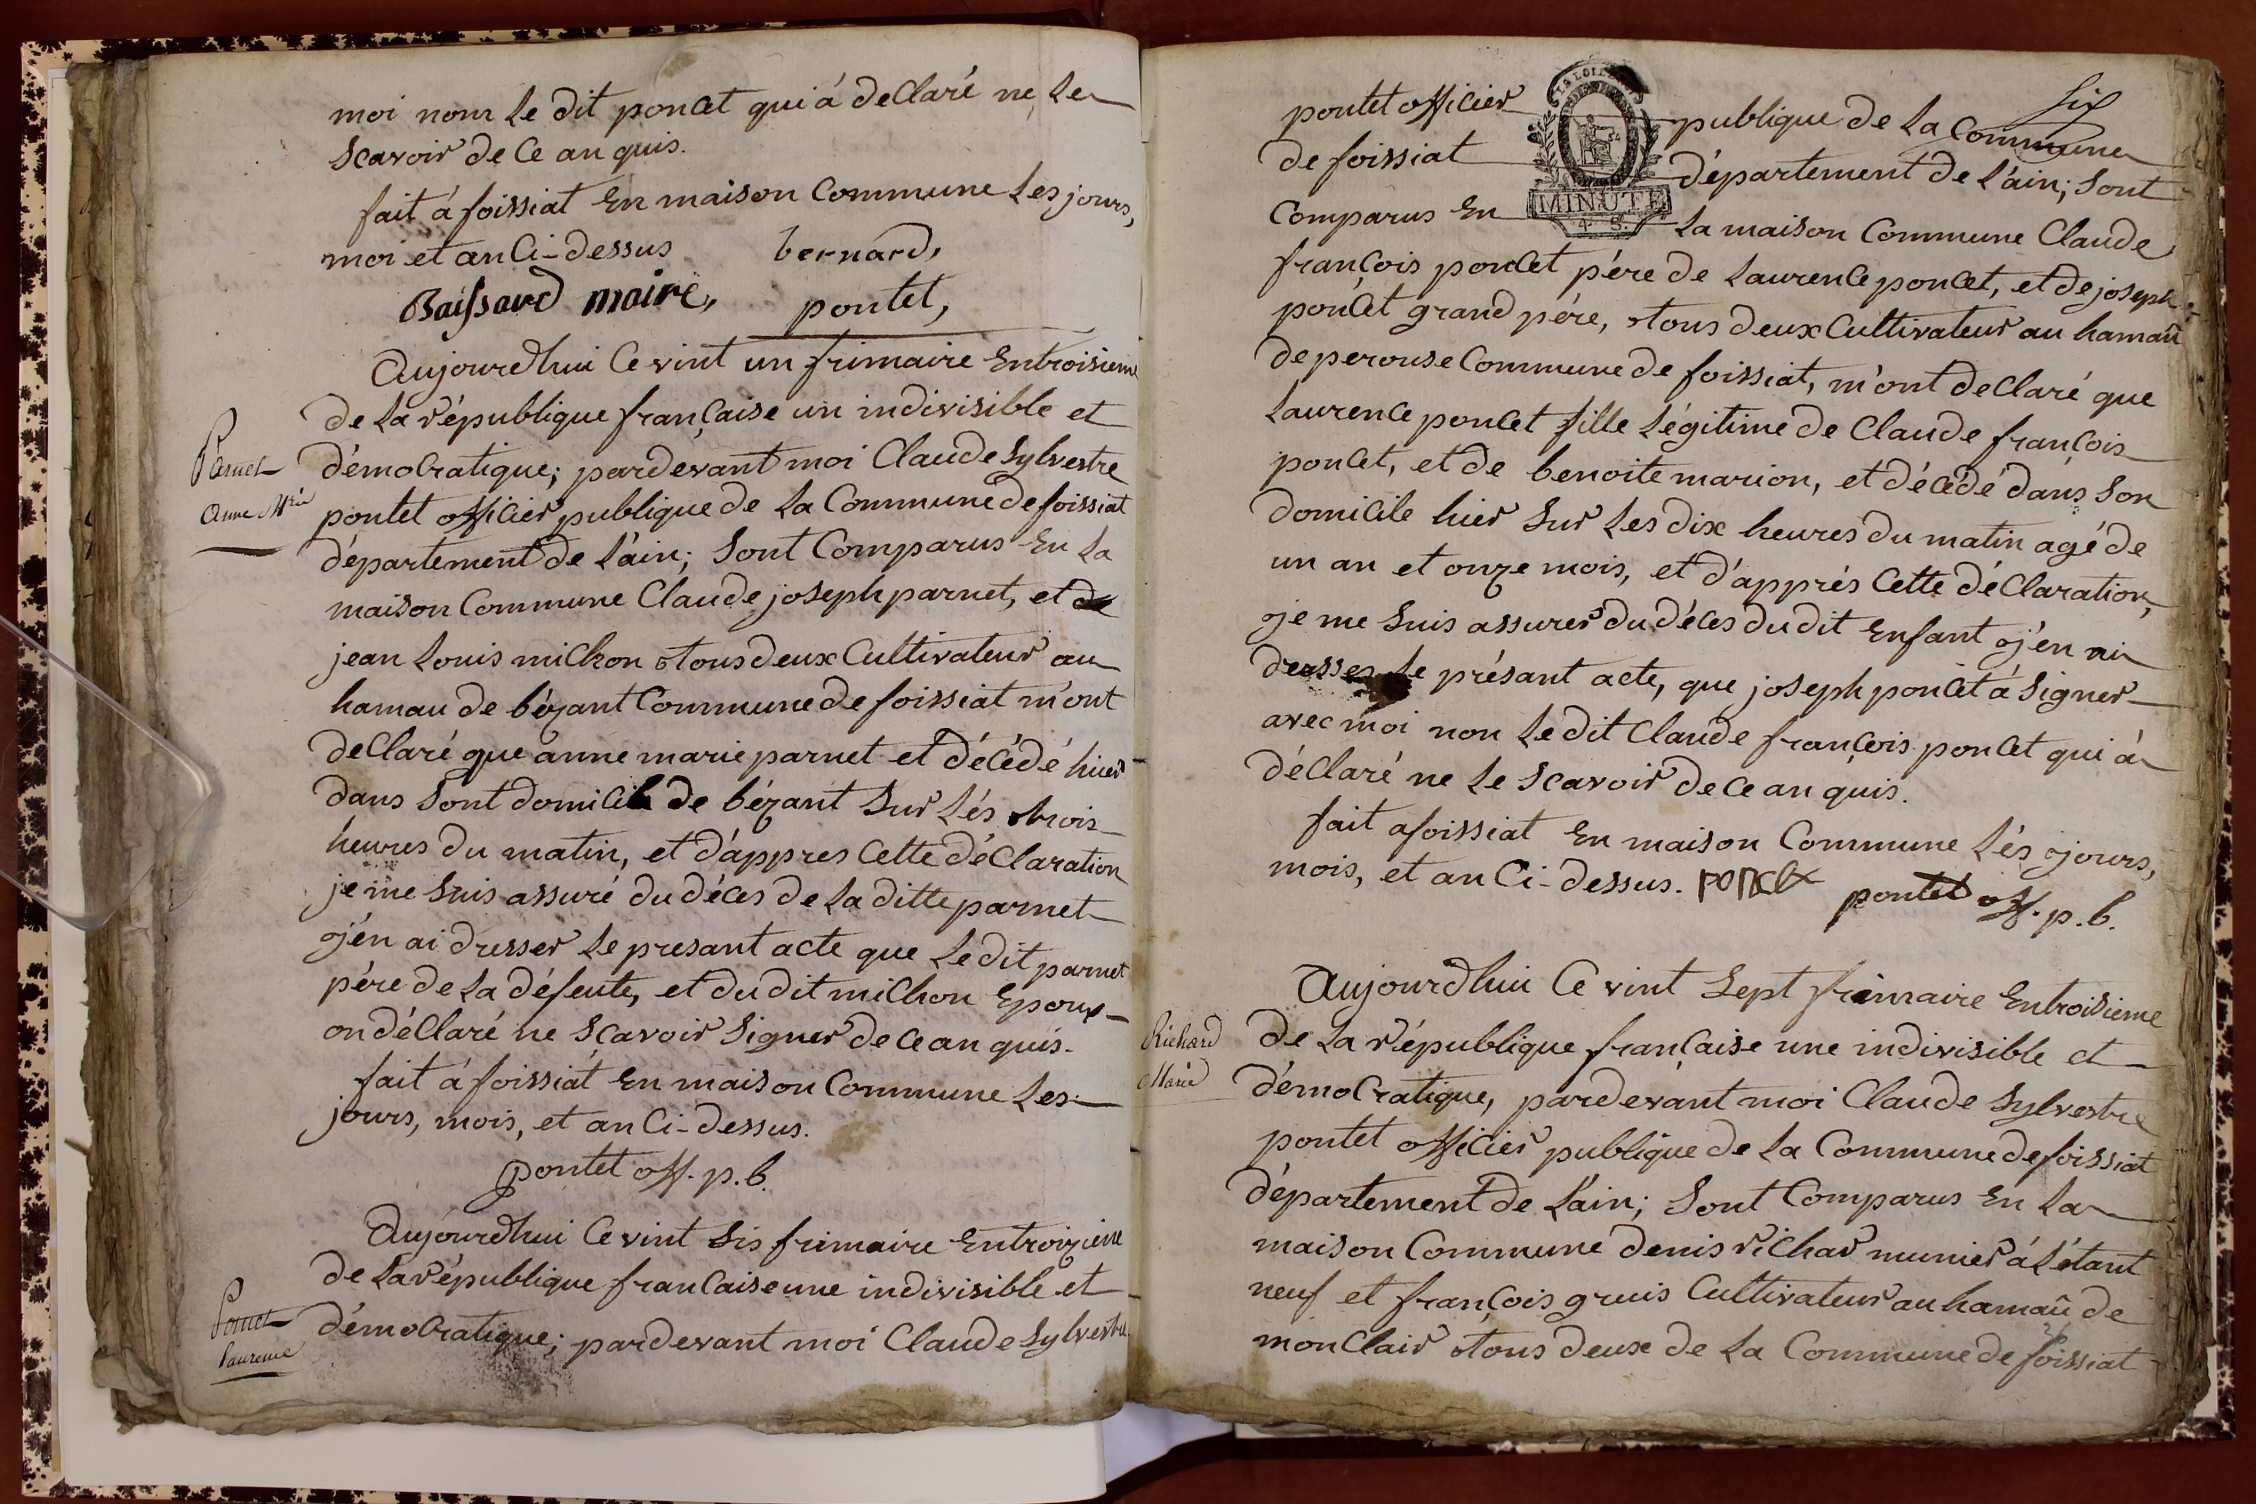 moi nom le dit poncet qui á declaré ne le
scavoir de ce an quis.
fait á foissiat en maison commune les jours,
moi et an ci-dessus bernard,
Baissard maire, pontet,
aujourdhui ce vint un frimaire entroisieme
de la république française un indivisible et
démocratique; pardevant moi Claude Sylvestre
Parnet
anne Mrie
pontet officier publique de la commune de foissiat
département de l'ain; sont comparus en la
maison commune Claude joseph parnet, et de
jean louis michon tous deux cultivateur au
hamau de bézant commune de foissiat m'ont
declaré que anne marie parnet et décédé hier
dans sont domicile de bézant sur lés trois
heures du matin, et d'appres cette déclaration
je me suis assuré du déces de la ditte parnet
j'én ai dresser le presant acte que le dit parnet
pére de la défente, et du dit michon epoux
on déclaré ne scavoir signer de ce an quis.
fait á foissiat en maison commune les
jours, mois, et an ci-dessus.
pontet off. p. b.
aujourdhui ce vint sis frimaire entroizieme
de la république francaise une indivisible et
démocratique; pardevant moi Claude Sylvestre
Poncet
Laurence
six
pontet officier publique de la commune
de foissiat département de l'ain; sont
comparus en la maison commune Claude
MINUTE
françois poncet pére de laurence poncet, et de joseph
poncet grand pére, tous deux cultivateur au hamaû
de perouse commune de foissiat, m'ont declaré que
laurence poncet fille légitime de Claude françois
poncet, et de benoite marion, et décédé dans son
domicile hier sur les dix heures du matin agé de
un an et onze mois, et d'apprés cette déclaration,
je me suis assurer du déces du dit enfant j'én ai
dresser le présant acte, que joseph poncet á signer
avec moi non le dit Claude françois poncet qui á
déclaré ne le scavoir de ce an quis.
fait a foissiat en maison commune lés jours,
mois, et an ci-dessus. poncet pontet off. p. b.
aujourdhui ce vint sept frimaire entroisieme
Richard
Marie
de la république française une indivisible et
démocratique, pardevant moi Claude Sylvestre
pontet officier publique de la commune de foissiat
département de l'ain; sont comparus en la
maison commune denis richar munier á l'étant
neuf et françois gruis cultivateur au hamaû de
monclair tous deux de la commune de foissiat